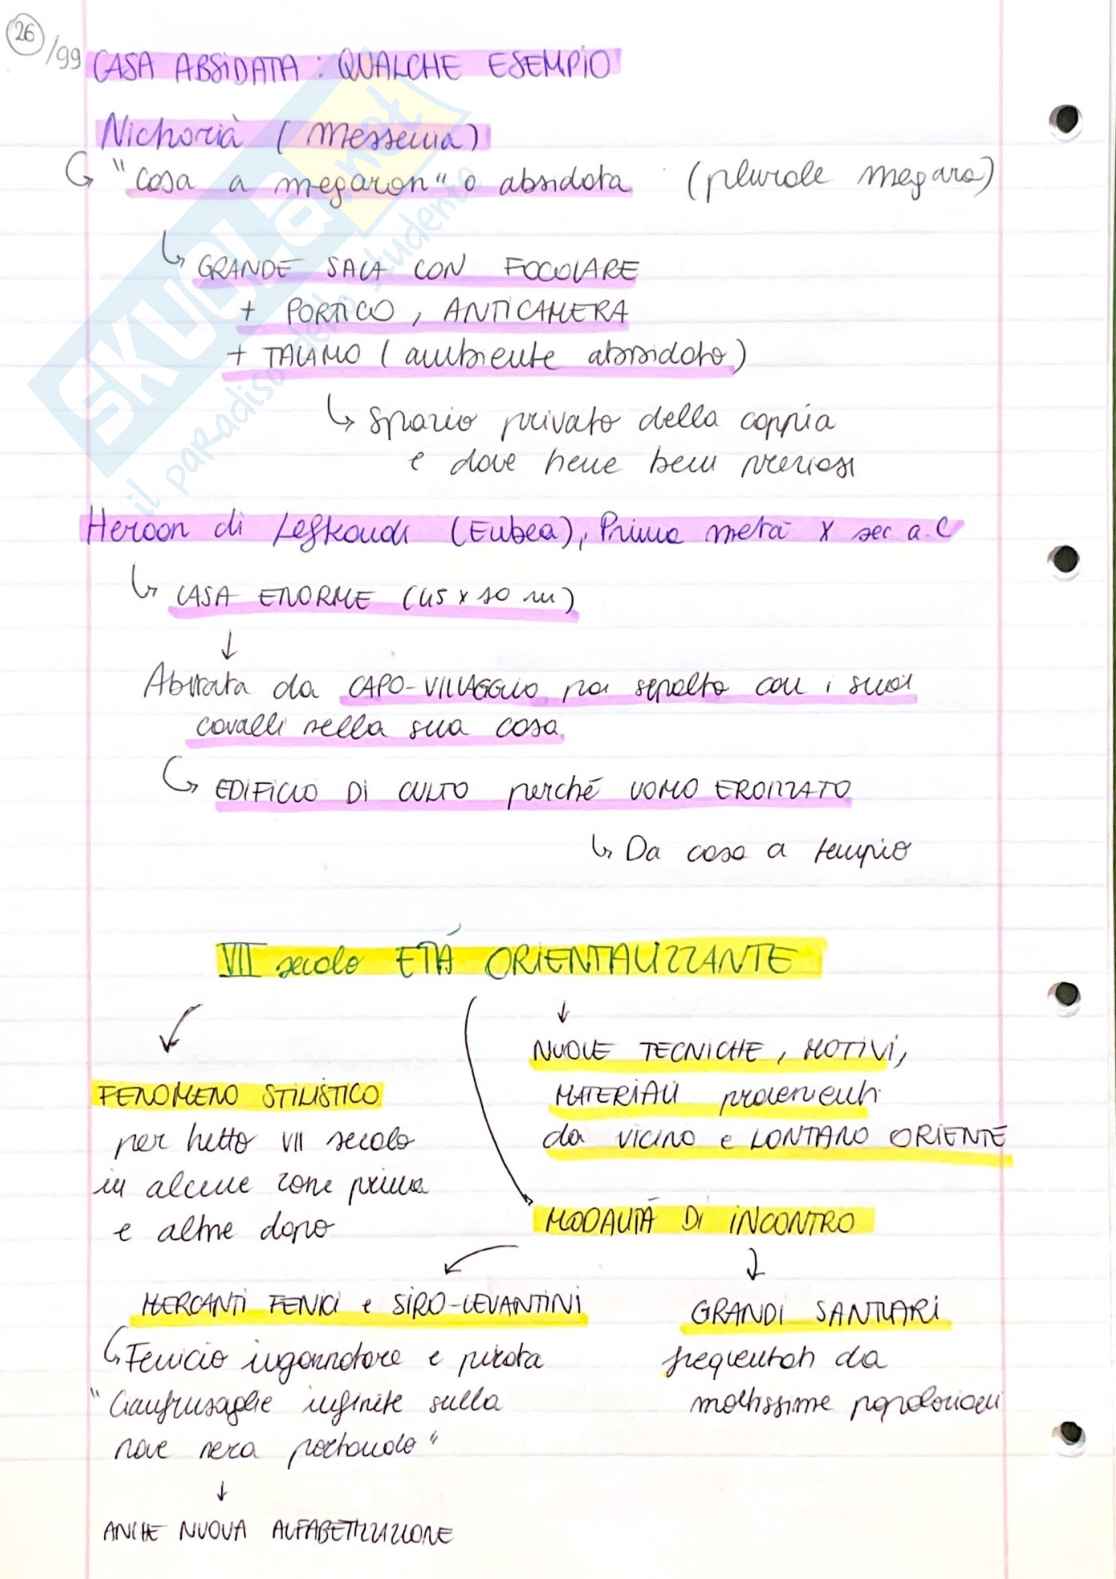 26/99
CASA ABSIDATA : QUALCHE ESEMPIO
Nichorià (Messenia)
"casa a megaron" o absidata (plurale megara)
GRANDE SALA CON FOCOLARE
+ PORTICO, ANTICAMERA
+ TALAMO (ambiente absidato)
Spazio privato della coppia
e dove tiene beni preziosi
Heroon di Lefkandi (Eubea), Prima metà X sec a.C
CASA ENORME (45 x 10 m)
Abitata da CAPO-VILLAGGIO poi sepolto con i suoi
cavalli nella sua casa
EDIFICIO DI CULTO perché UOMO EROIZZATO
Da casa a tempio
VII secolo ETÁ ORIENTALIZZANTE
NUOVE TECNICHE, MOTIVI,
MATERIALI provenienti
da VICINO e LONTANO ORIENTE
FENOMENO STILISTICO
per tutto VII secolo
in alcune zone prima
e altre dopo
MODALITÁ DI INCONTRO
MERCANTI FENICI e SIRO-LEVANTINI
Fenicio ingannatore e pirata
"Cianfrusaglie infinite sulla
nave nera portando"
ANCHE NUOVA ALFABETIZZAZIONE
GRANDI SANTUARI
frequentati da
moltissime popolazioni
SKUOLA.net
il paradiso dello studente